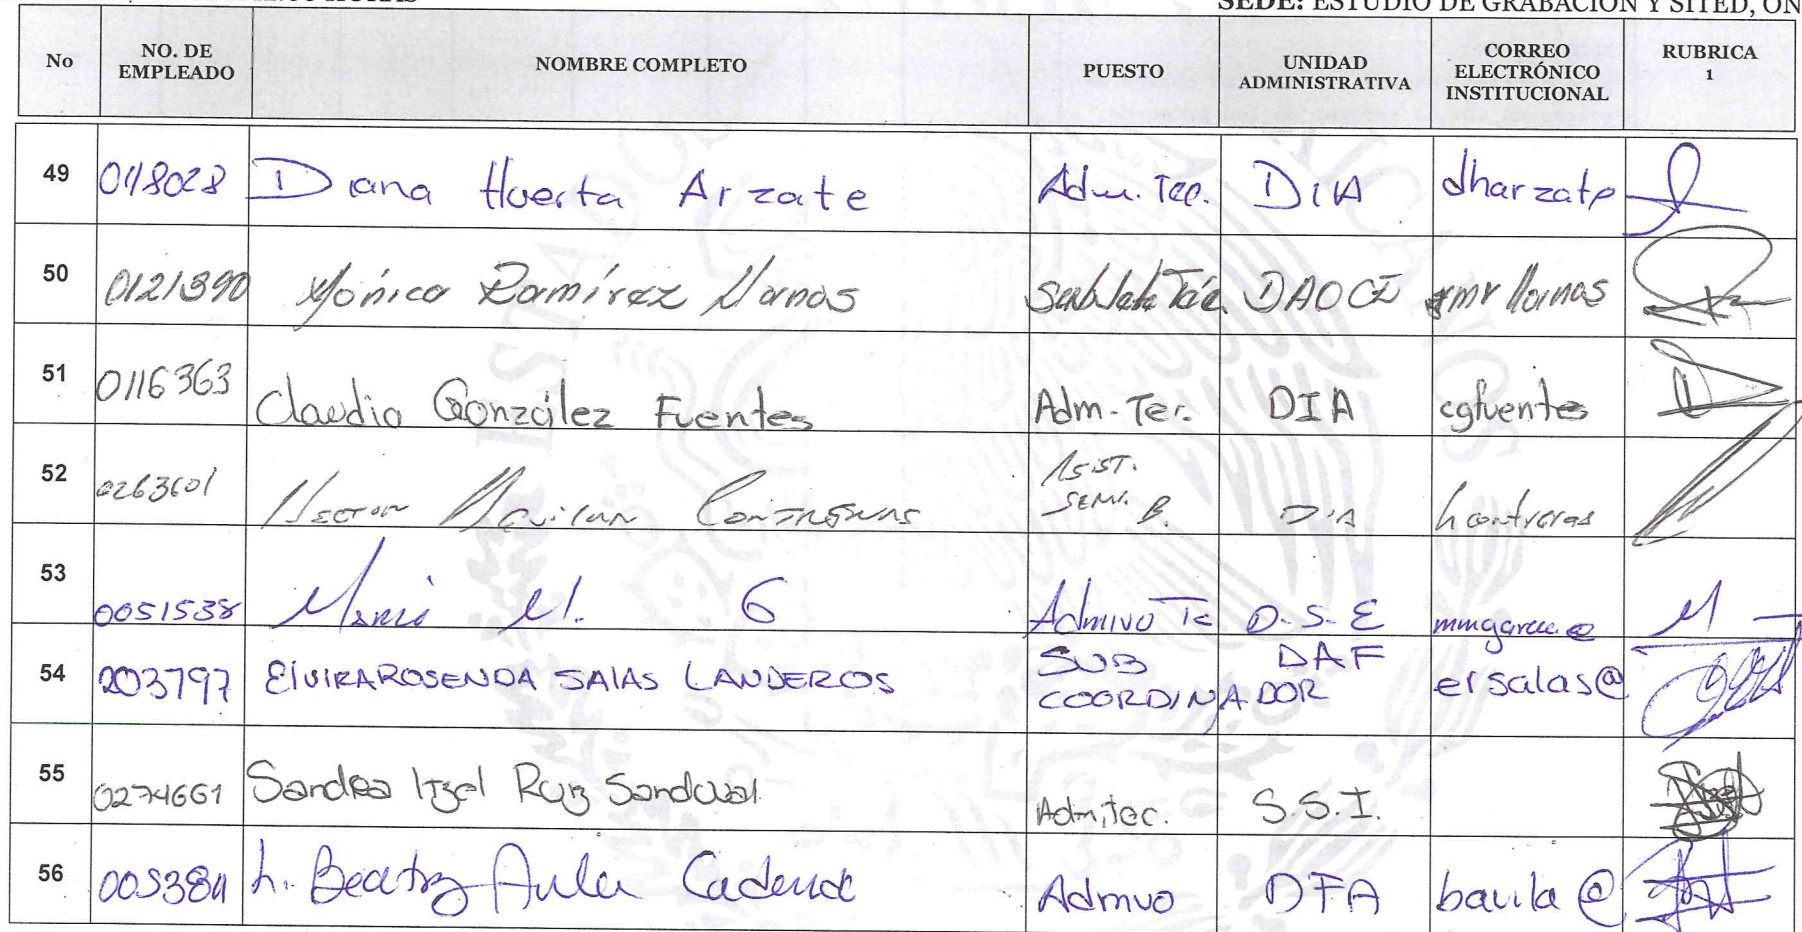 SEDE: ESTUDIO DE GRABACIÓN Y SITED, ON
No NO. DE EMPLEADO NOMBRE COMPLETO PUESTO UNIDAD ADMINISTRATIVA CORREO ELECTRÓNICO INSTITUCIONAL RUBRICA 1
49 0118028 Diana Huerta Arzate Adm. Tec. DIA dharzate
50 0121390 Mónica Ramírez Llanas DAOCI
51 0116363 Claudia González Fuentes Adm-Tec. DIA cgfuentes
52 0263601 Hector Contreras ASIST. SERV. B. DIA hcontreras
53 0051538 M. G Admivo Te D.S.E
54 203797 ElviRA ROSENDA SALAS LANDEROS SUB COORDINADOR DAF ersalas@
55 0274661 Sandra Itzel Ruiz Sandoval Adm,tec. S.S.I.
56 L. Beatriz Avila Cadena Admvo DFA bavila@